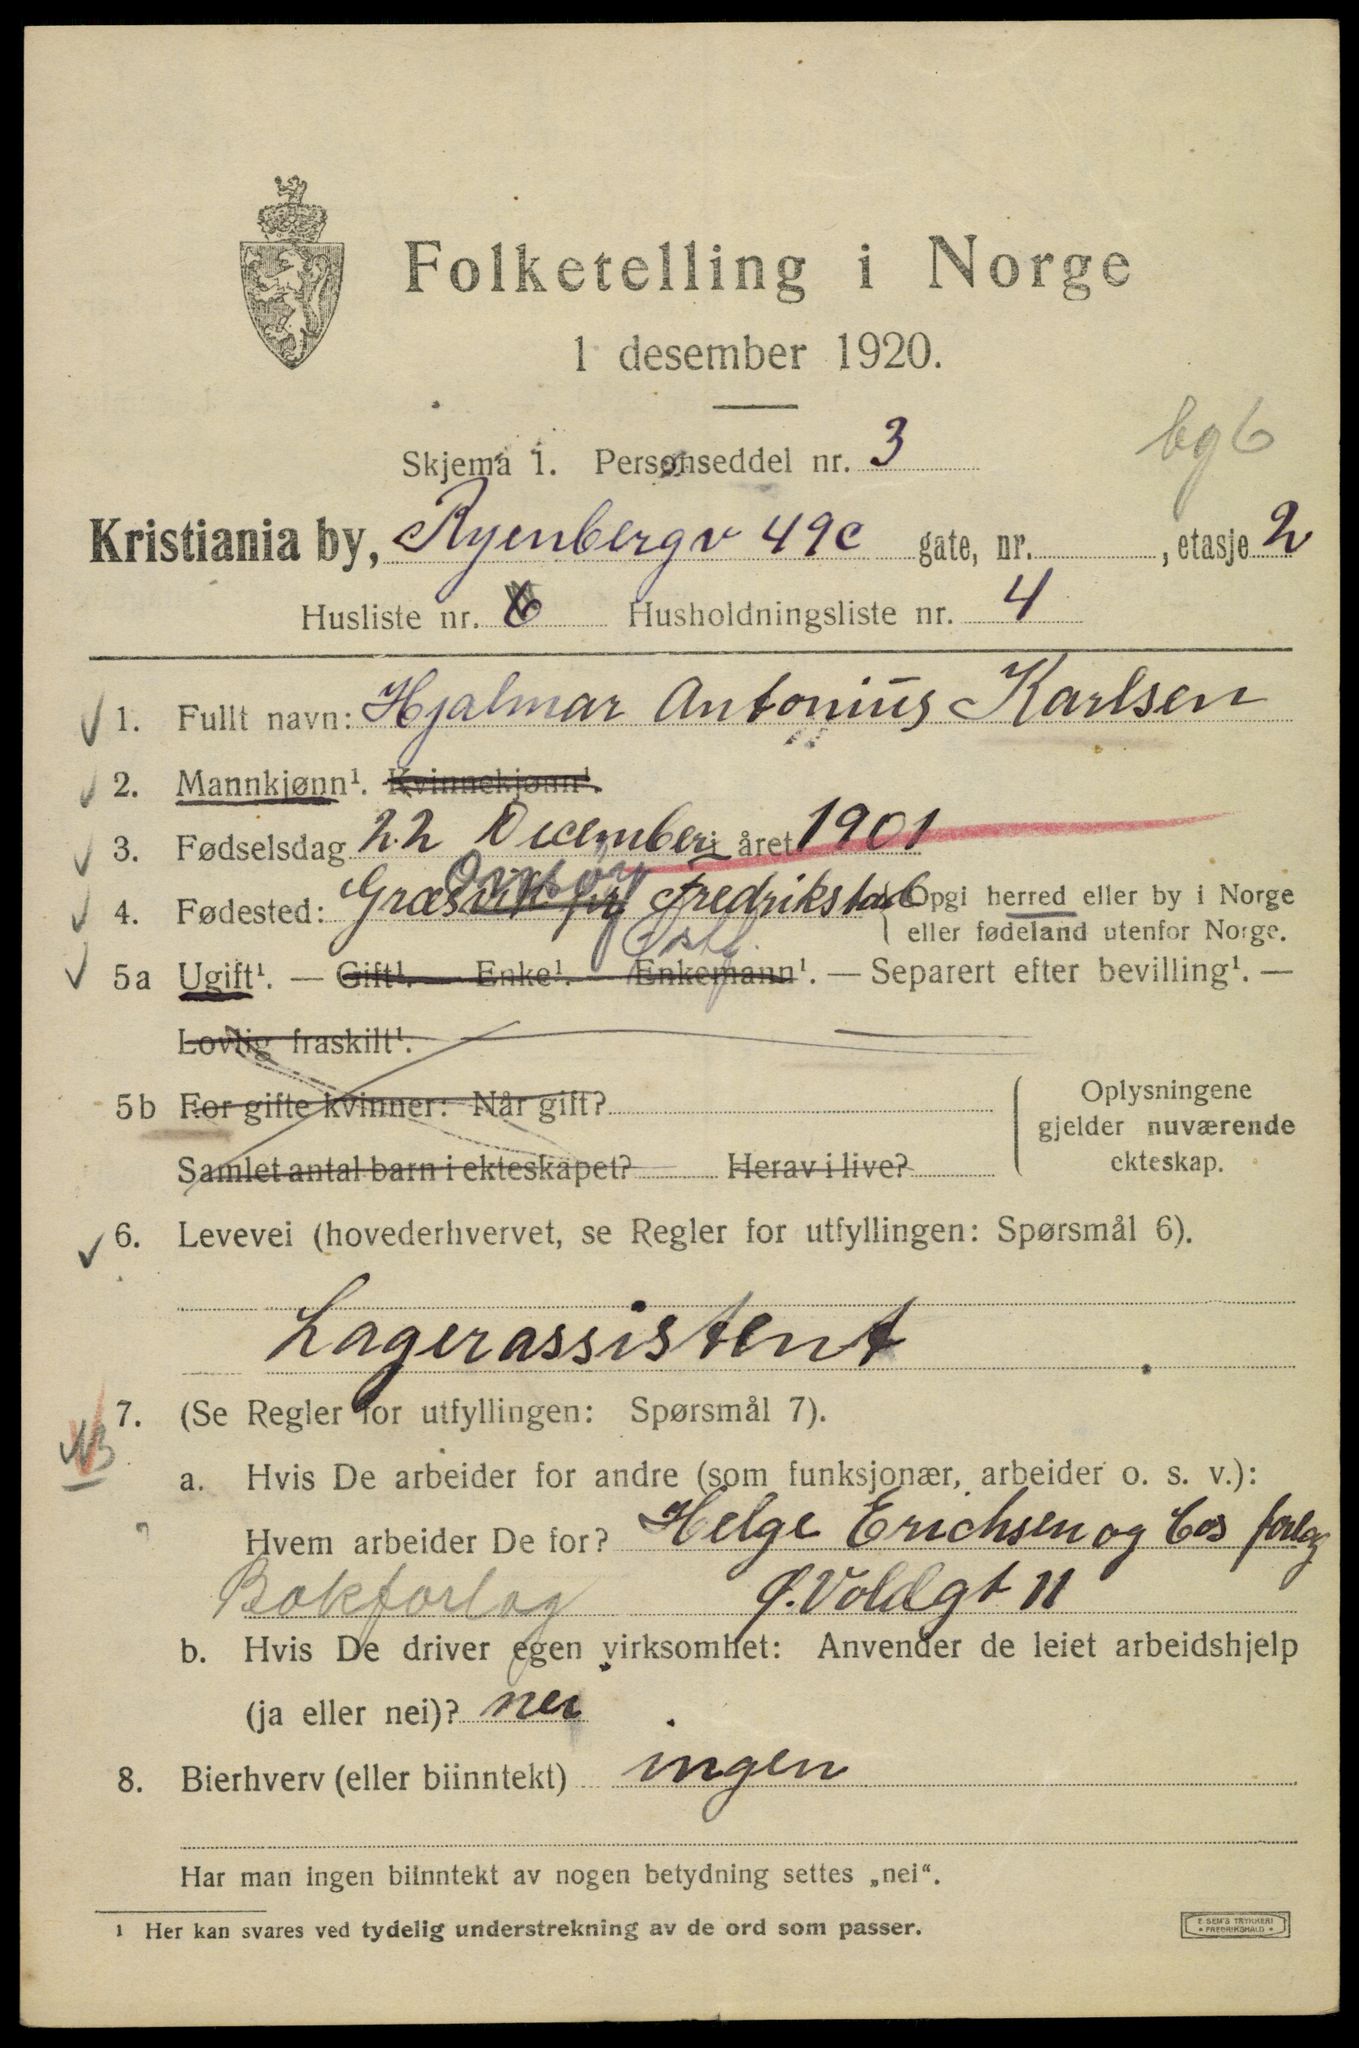 Folketelling i Norge
1 desember 1920.
Skjema 1. Personseddel nr. 3
bg6
Kristiania by, Ryenbergv 49c gate, nr. , etasje 2
Husliste nr. 6 Husholdningsliste nr. 4
1. Fullt navn: Hjalmar Antonius Karlsen
2. Mannkjønn¹. Kvinnekjønn¹.
3. Fødselsdag 22 December i året 1901
Onsøy
4. Fødested: Græsvik pr Fredrikstad Opgi herred eller by i Norge
eller fødeland utenfor Norge.
Østf.
5a Ugift¹. — Gift¹. Enke¹. — Enkemann¹. — Separert efter bevilling¹. —
Lovlig fraskilt¹.
5b For gifte kvinner: Når gift?
Samlet antal barn i ekteskapet? Herav i live?
Oplysningene
gjelder nuværende
ekteskap.
6. Levevei (hovederhvervet, se Regler for utfyllingen: Spørsmål 6).
Lagerassistent
7. (Se Regler for utfyllingen: Spørsmål 7).
NB
a. Hvis De arbeider for andre (som funksjonær, arbeider o. s. v.):
Hvem arbeider De for? Helge Erichsen og Cos forlag
Bokforlag Ø. Voldgt 11
b. Hvis De driver egen virksomhet: Anvender de leiet arbeidshjelp
(ja eller nei)? nei
8. Bierhverv (eller biinntekt) ingen
Har man ingen biinntekt av nogen betydning settes „nei“.
¹ Her kan svares ved tydelig understrekning av de ord som passer.
E. SEM'S TRYKKERI
• FREDRIKSHALD •